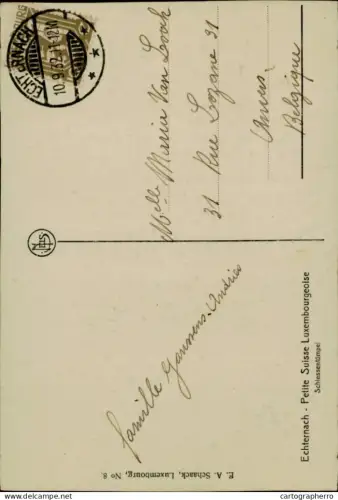 Echternach - Petite Suisse Luxembourgeoise
Schiessentümpel
ECHTERNACH
10.9.32
Nels
Famille Janssens-Andries
Melle Maria Van Loock
31 Rue Lozane 31
Anvers
Belgique
E. A. Schaack, Luxembourg, No 8.
delcampe.net
cartographerro